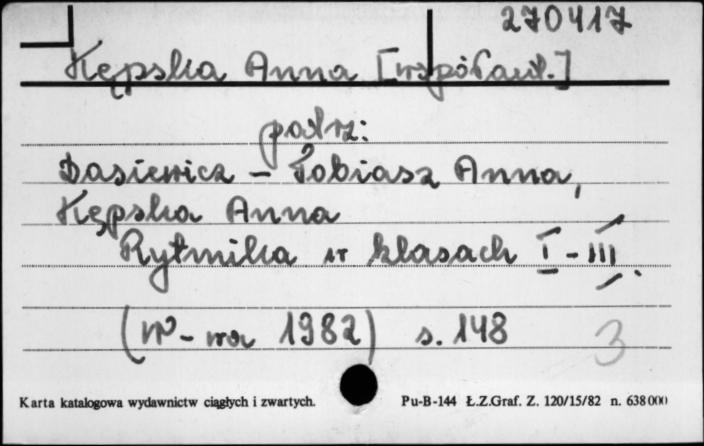 270417
Kępska Anna [współaut.]
podrz:
Dasiewicz - Tobiasz Anna,
Kępska Anna
Rytmika w klasach I - III.
(W-wa 1982) s. 148
3
Karta katalogowa wydawnictw ciągłych i zwartych. Pu-B-144 Ł.Z.Graf. Z. 120/15/82 n. 638000